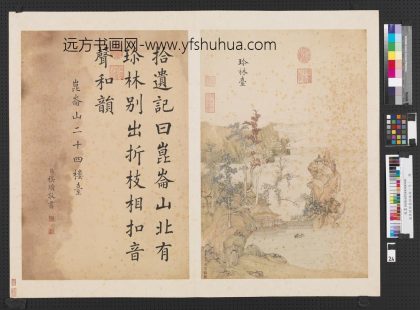 远方书画网-www.yfshuhua.com
珎林臺
拾遺記曰崑崙山北有
珎林别出折枝相扣音
聲和韻
崑崙山二十四樓臺